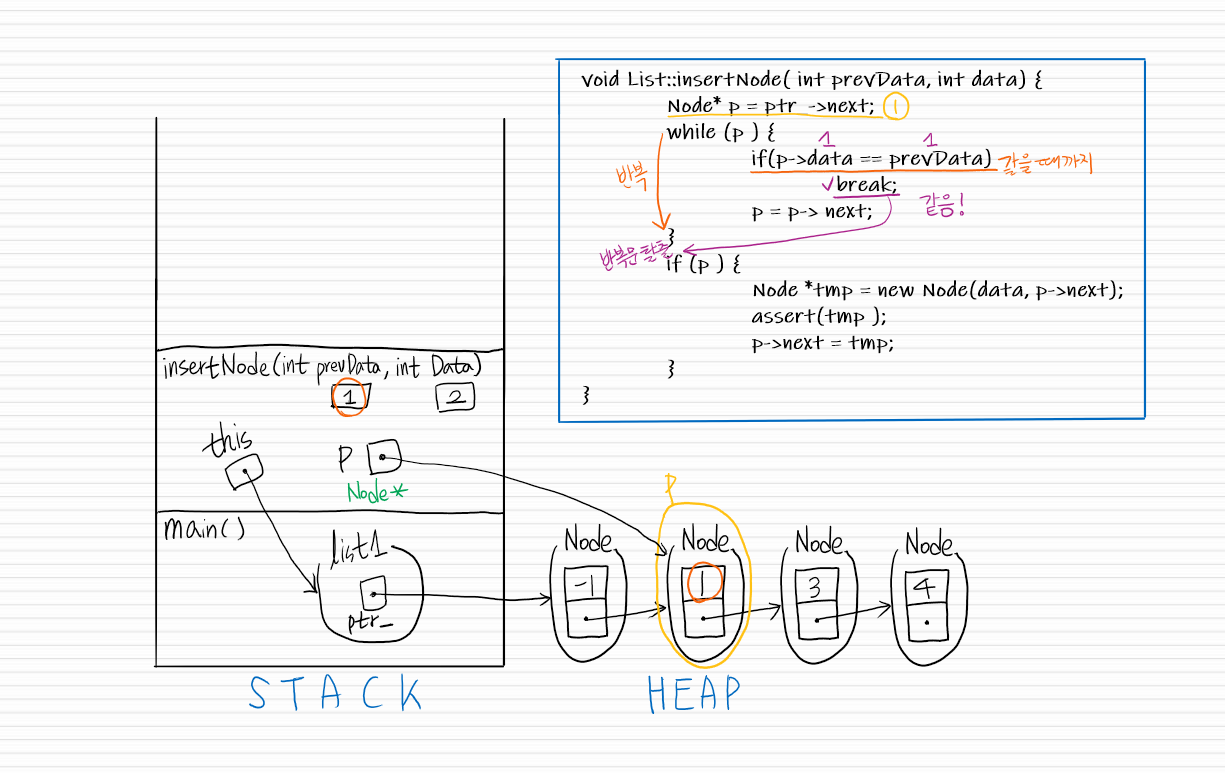 void List::insertNode( int prevData, int data) {
Node* p = ptr_->next; ①
while (p ) {
1 1
if(p->data == prevData) 같을 때까지
반복
✓break;
같음!
p = p-> next;
}
반복문 탈출
if (p ) {
Node *tmp = new Node(data, p->next);
assert(tmp );
p->next = tmp;
}
}
insertNode(int prevData, int Data)
1 2
this
p
Node*
main()
list1
ptr_
p
Node Node Node Node
-1 1 3 4
STACK HEAP